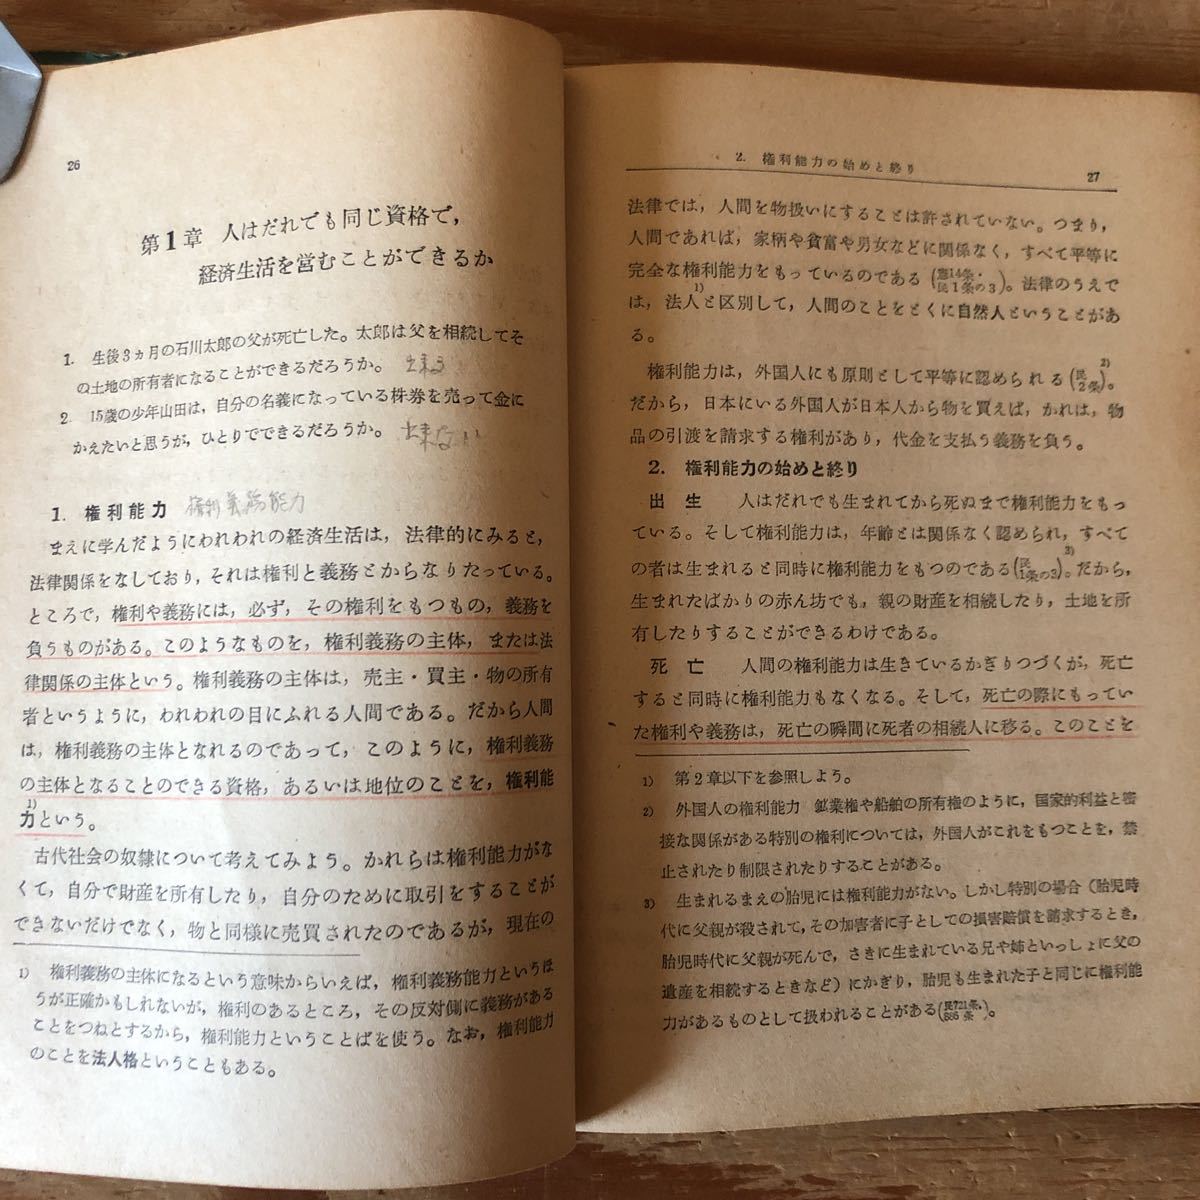 26
第1章 人はだれでも同じ資格で,
経済生活を営むことができるか
1. 生後3ヵ月の石川太郎の父が死亡した。太郎は父を相続してそ
の土地の所有者になることができるだろうか。 出来る
2. 15歳の少年山田は,自分の名義になっている株券を売って金に
かえたいと思うが,ひとりでできるだろうか。 出来ない
1. 権利能力 権利義務能力
まえに学んだようにわれわれの経済生活は,法律的にみると,
法律関係をなしており,それは権利と義務とからなりたっている。
ところで,権利や義務には,必ず,その権利をもつもの,義務を
負うものがある。このようなものを,権利義務の主体,または法
律関係の主体という。権利義務の主体は,売主・買主・物の所有
者というように,われわれの目にふれる人間である。だから人間
は,権利義務の主体となれるのであって,このように,権利義務
の主体となることのできる資格,あるいは地位のことを,権利能
力1)という。
古代社会の奴隷について考えてみよう。かれらは権利能力がな
くて,自分で財産を所有したり,自分のために取引をすることが
できないだけでなく,物と同様に売買されたのであるが,現在の
1) 権利義務の主体になるという意味からいえば,権利義務能力というほ
うが正確かもしれないが,権利のあるところ,その反対側に義務がある
ことをつねとするから,権利能力ということばを使う。なお,権利能力
のことを法人格ということもある。
2. 権利能力の始めと終り
27
法律では,人間を物扱いにすることは許されていない。つまり,
人間であれば,家柄や貧富や男女などに関係なく,すべて平等に
完全な権利能力をもっているのである(憲14条・民1条の3)。法律のうえで
は,法人1)と区別して,人間のことをとくに自然人ということがあ
る。
権利能力は,外国人にも原則として平等に認められる(民2条)2)。
だから,日本にいる外国人が日本人から物を買えば,かれは,物
品の引渡を請求する権利があり,代金を支払う義務を負う。
2. 権利能力の始めと終り
出生 人はだれでも生まれてから死ぬまで権利能力をもっ
ている。そして権利能力は,年齢とは関係なく認められ,すべて
の者は生まれると同時に権利能力をもつのである(民1条の3)3)。だから,
生まれたばかりの赤ん坊でも,親の財産を相続したり,土地を所
有したりすることができるわけである。
死亡 人間の権利能力は生きているかぎりつづくが,死亡
すると同時に権利能力もなくなる。そして,死亡の際にもってい
た権利や義務は,死亡の瞬間に死者の相続人に移る。このことを
1) 第2章以下を参照しよう。
2) 外国人の権利能力 鉱業権や船舶の所有権のように,国家的利益と密
接な関係がある特別の権利については,外国人がこれをもつことを,禁
止されたり制限されたりすることがある。
3) 生まれるまえの胎児には権利能力がない。しかし特別の場合(胎児時
代に父親が殺されて,その加害者に子としての損害賠償を請求するとき,
胎児時代に父親が死んで,さきに生まれている兄や姉といっしょに父の
遺産を相続するときなど)にかぎり,胎児も生まれた子と同じに権利能
力があるものとして扱われることがある(民721条,886条)。